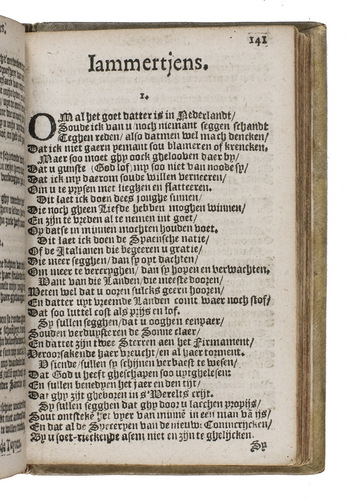 141
Iammertjens.
1.
OM al het goet datter is in Nederlandt/
Soude ick van u noch niemant seggen schandt
Teghen reden/ also datmen wel mach dencken/
Dat ick niet gaeren yemant sou blameren of krencken.
Maer soo moet ghy oock ghelooven daer by/
Dat u gunste (God lof) my soo niet van noode sy/
Dat ick my daerom soude willen verneeren/
Om u te prysen met lieghen en flatteeren.
Dit laet ick doen dees jonghe sinnen/
Die noch gheen Liefde hebben moghen winnen/
En zijn te vreden al te nemen int goet/
Op datse in minnen mochten houden voet.
Dit laet ick doen de Spaensche natie/
Of de Italianen die begeeren u gratie/
Die meer segghen/ dan sy oyt dachten/
Om meer te vercryghen/ dan sy hopen en verwachten.
Want van die Landen/ die meeste dooren/
Weten wel dat u ooren sulcks geern hooren/
En datter uyt vreemde Landen comt waer noch stof/
Dat soo luttel cost als prijs en lof.
Sy sullen segghen/ dat u ooghen eenpaer/
Souden verduysteren de Sonne claer/
En dattet zijn twee Sterren aen het Firmament/
Veroorsakende haer vreucht/ en al haer torment.
Dsiende/ sullen sy schijnen verbaest te wesen/
Dat God u heeft gheschapen soo uytghelesen:
En sullen benedyen het jaer en den tijt/
Dat ghy zijt gheboren in s'Werelts crijt.
Sy sullen segghen dat ghy door u lacchen propijs/
Sout ontsteken het vyer van minne in een man van ijs/
En dat al de Speceryen van de nieuw Commerijcken/
By u soet-rieckende asem niet en zijn te ghelijcken.
Sy